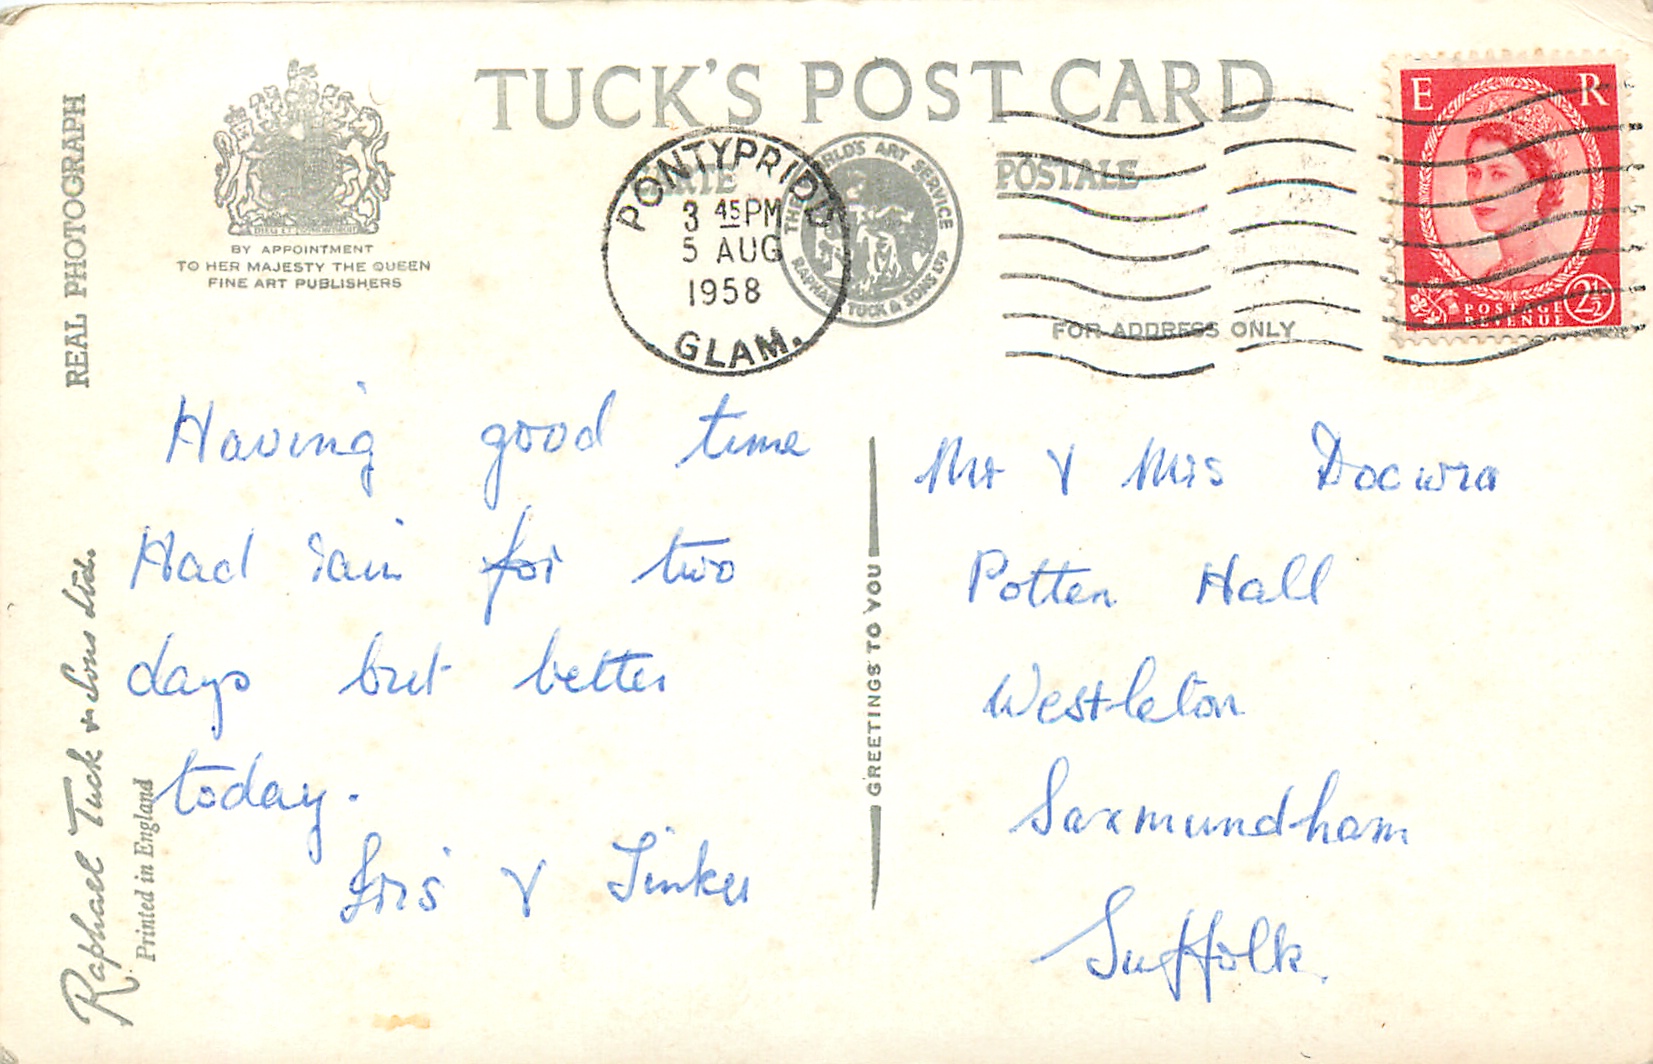 TUCK'S POST CARD
CARTE POSTALE
REAL PHOTOGRAPH
BY APPOINTMENT
TO HER MAJESTY THE QUEEN
FINE ART PUBLISHERS
PONTYPRIDD
3 45PM
5 AUG
1958
GLAM.
THE WORLD'S ART SERVICE
RAPHAEL TUCK & SONS LTD
FOR ADDRESS ONLY
E R
POSTAGE
REVENUE
2½
Having good time
Had rain for two
days but better
today.
Iris & Tinker
GREETINGS TO YOU
Mr & Mrs Docwra
Potten Hall
Westleton
Saxmundham
Suffolk.
Raphael Tuck & Sons Ltd.
Printed in England